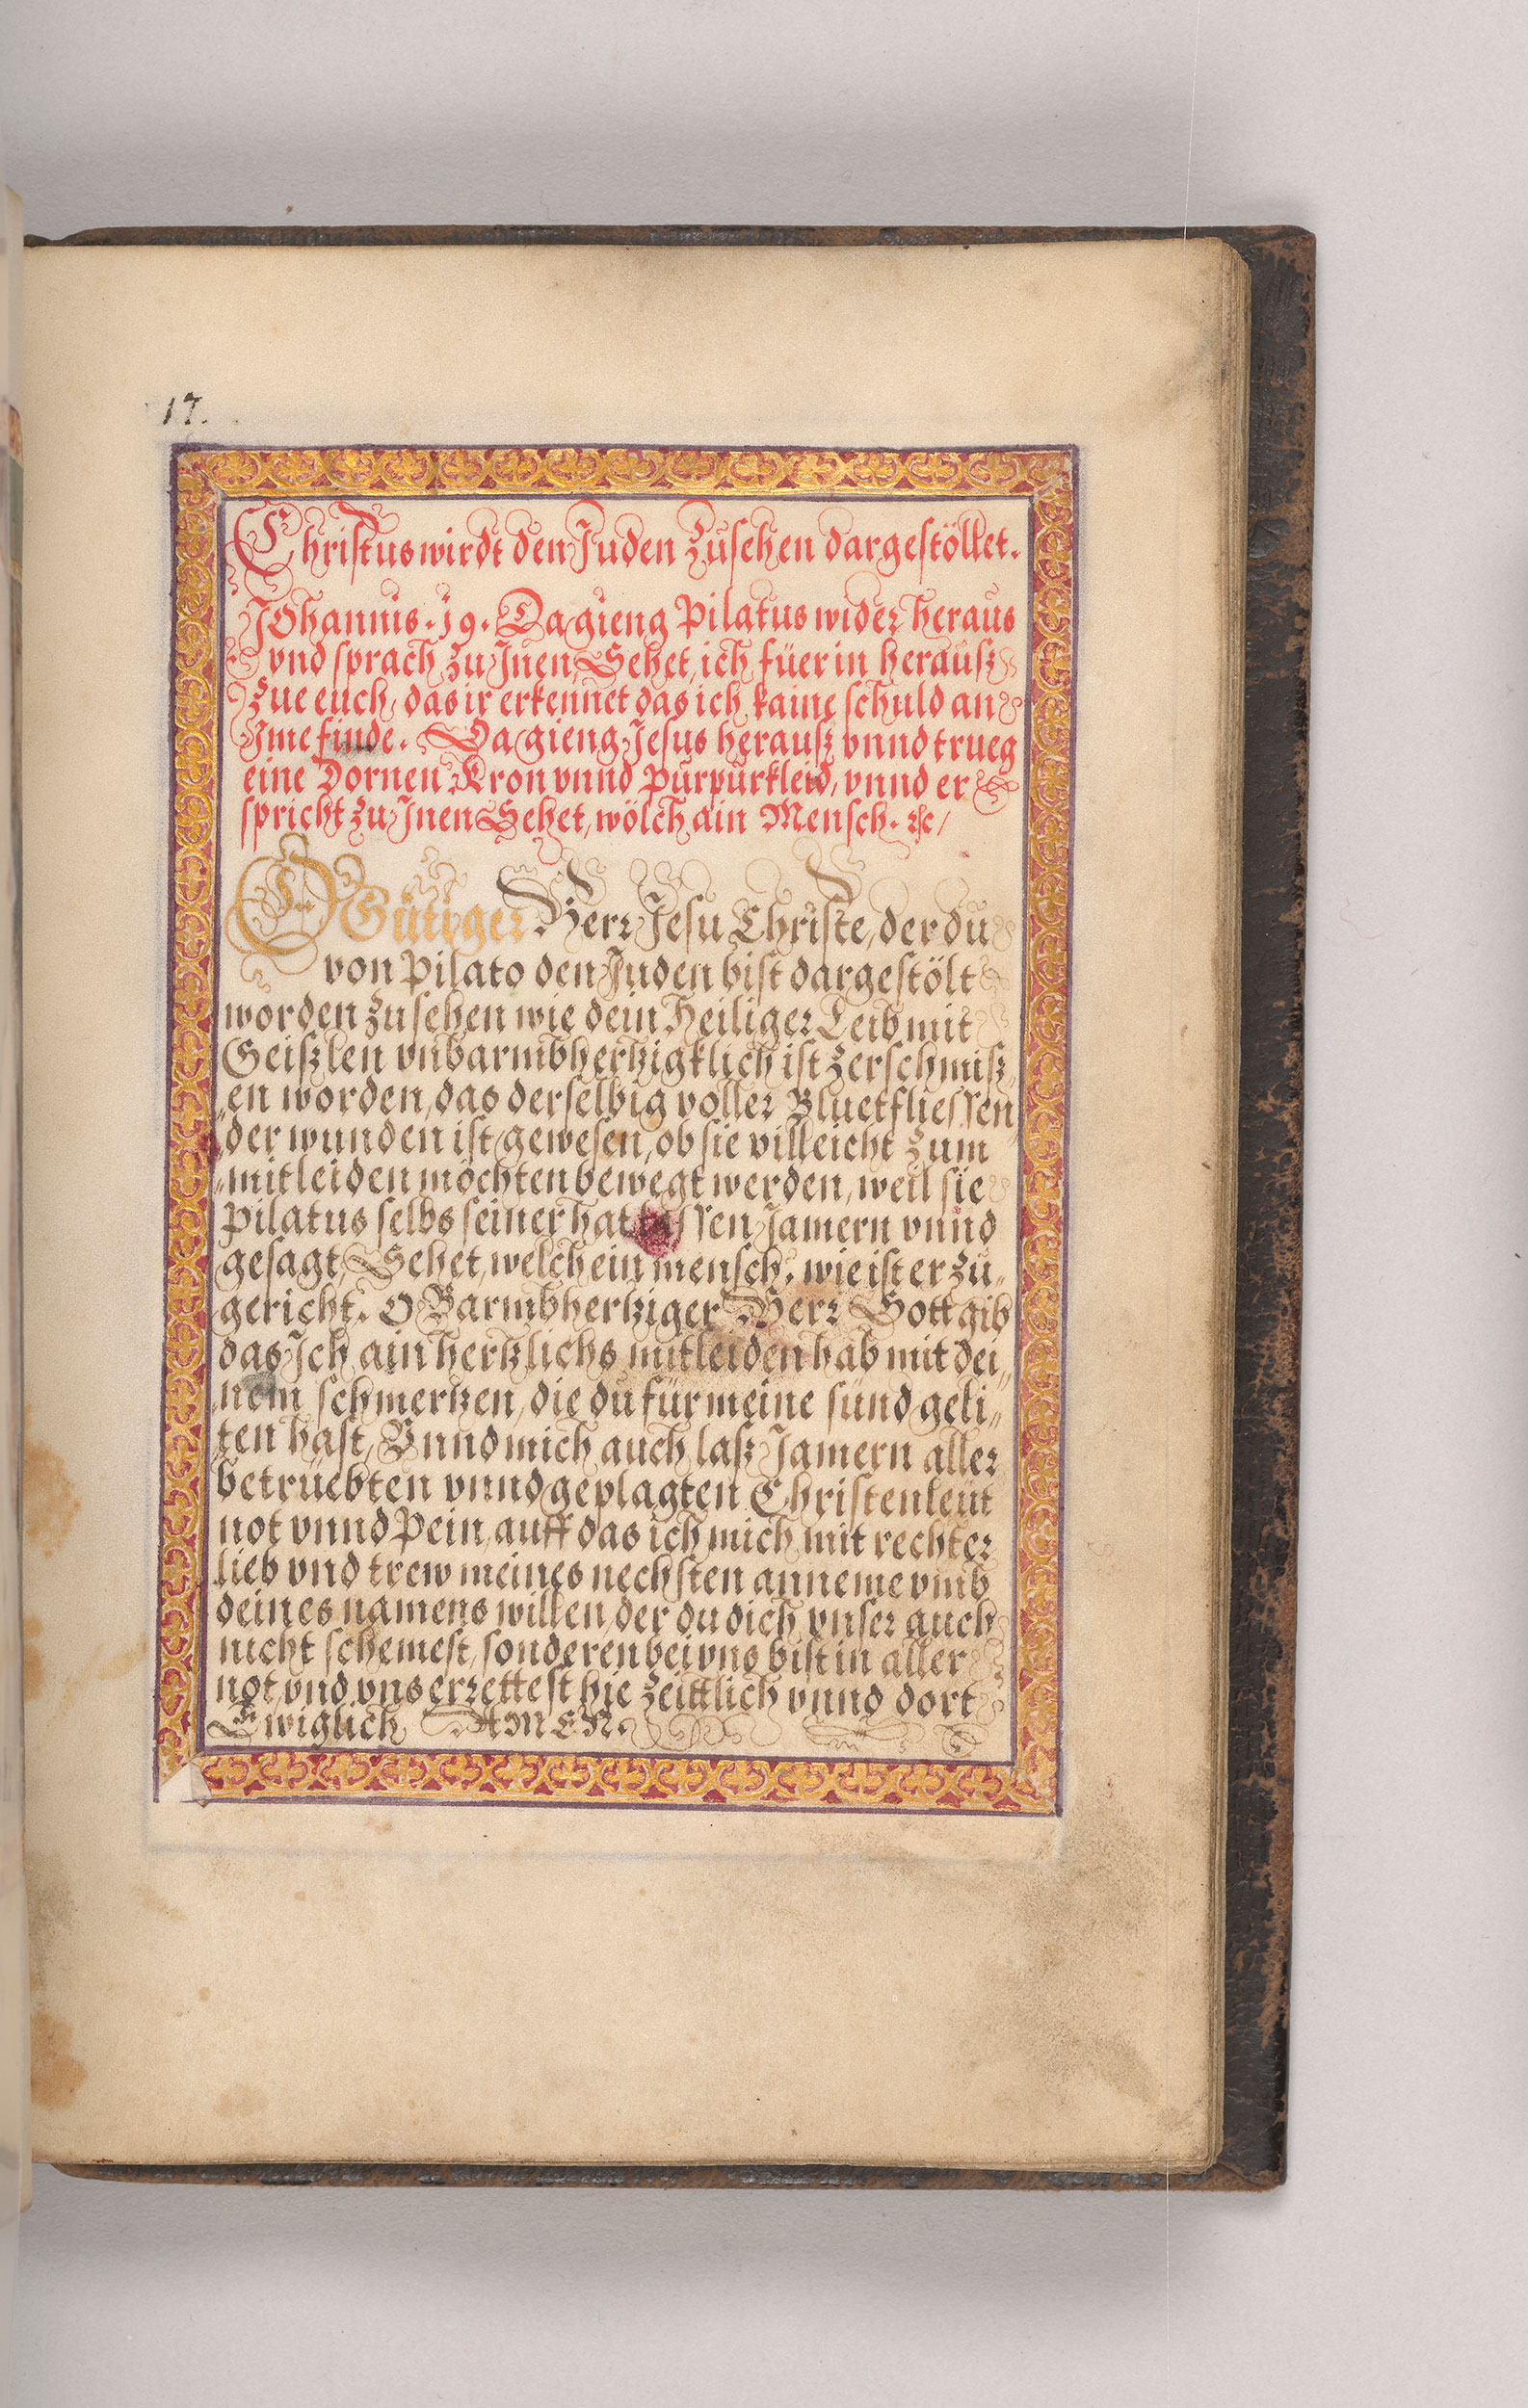 17.
Christus wirdt den Juden zusehen dargestöllet.
JOhannis. 19. Da gieng Pilatus wider heraus
vnd sprach zu Jnen, Sehet, ich füer in herausz
zue euch, das ir erkennet das ich kaine schuld an
Jme finde. Da gieng Jesus herausz vnnd trueg
eine Dornen Kron vnnd Purpurkleid, vnnd er
spricht zu Jnen Sehet, wölch ain Mensch. ꝛc/
O Gütiger Herr Jesu Christe, der du
von Pilato den Juden bist dargestölt
worden zusehen wie dein Heiliger Leib mit
Geiszlen vnbarmbhertzigklich ist zerschmisz„
„en worden, das derselbig voller Bluetfliessen„
„der wunden ist gewesen, ob sie villeicht zum
„mitleiden möchten bewegt werden, weil sie
Pilatus selbs seiner hat lassen Jamern vnnd
gesagt, Sehet, welch ein mensch. wie ist er zu„
gericht. O Barmbhertziger Herr Gott gib
das Jch ain hertzlichs mitleiden hab mit dei„
„nem schmertzen, die du für meine sünd geli„
„ten hast, Vnnd mich auch lasz Jamern aller
betrüebten vnnd geplagten Christenleüt
not vnnd Pein, auff das ich mich mit rechter
lieb vnd trew meines nechsten anneme vmb
deines namens willen, der du dich vnser auch
nicht schemest, sonderen bei vns bist in aller
not, vnd vns errettest hie zeittlich vnnd dort
Ewiglich AMEN.